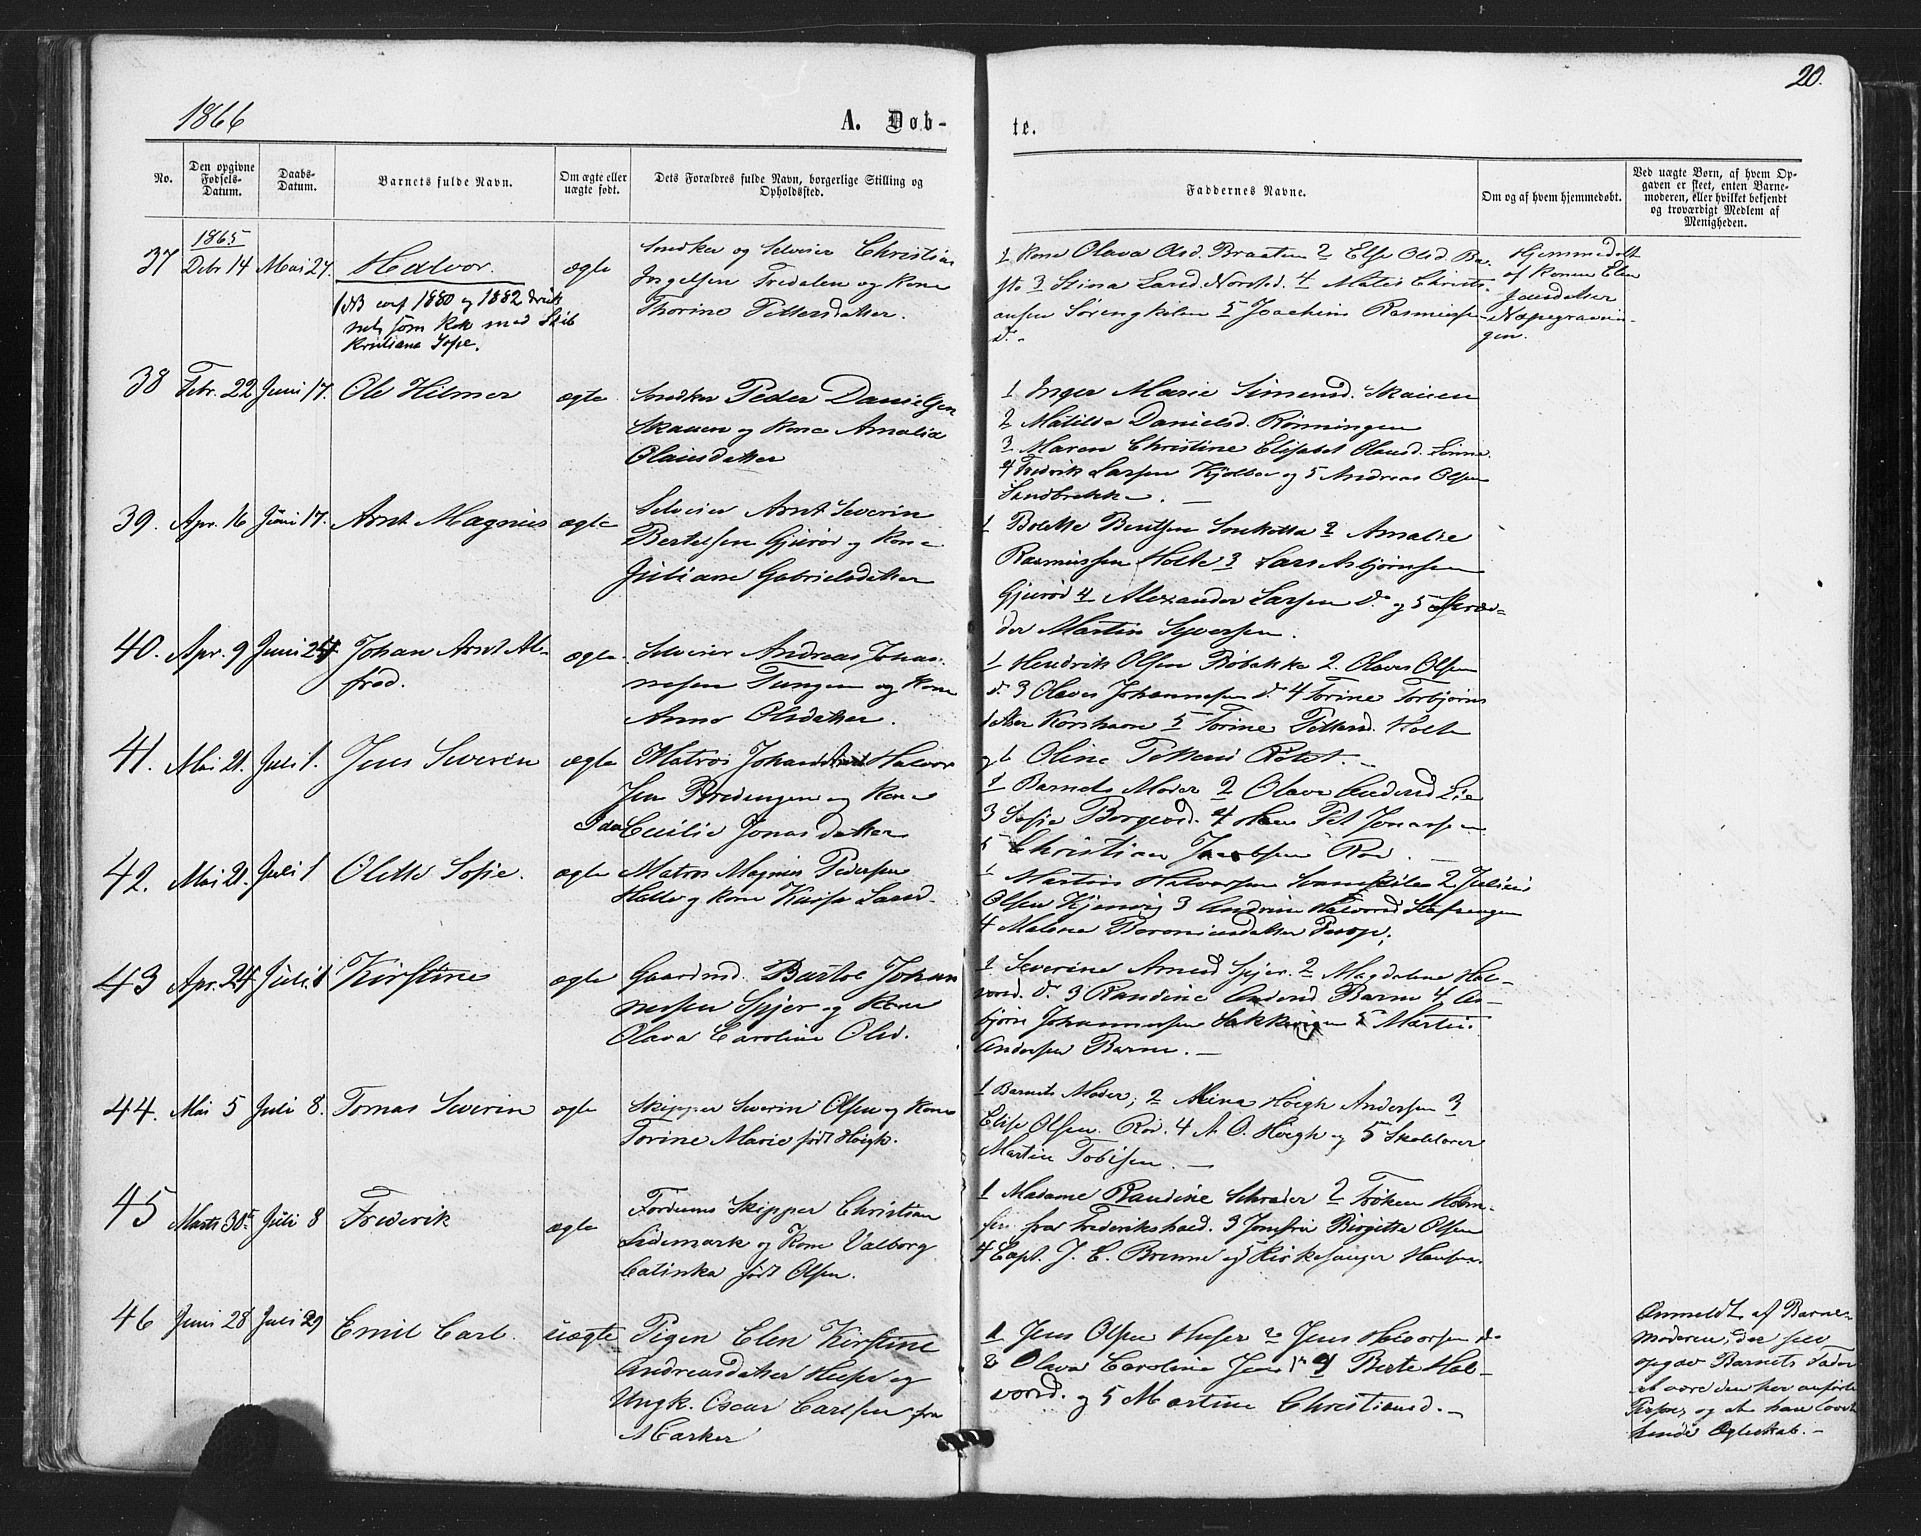 1866
A. Døb-
te.
20.
No.
Den opgivne Fødsels-Datum.
Daabs-Datum.
Barnets fulde Navn.
Om ægte eller uægte født.
Dets Forældres fulde Navn, borgerlige Stilling og Opholdssted.
Faddernes Navne.
Om og af hvem hjemmedøbt.
Ved uægte Børn, af hvem Op-
gaven er skeet, enten Barne-
moderen, eller hvilket bekjendt
og troværdigt Medlem af
Menigheden.
1865
37 Debr 14 Mai 27. Halvor. ægte
Snedker og Selveier Christian
Ingelsen Tredalen og Kone
Thorine Pettersdatter.
1 Kone Olava Olsd. Braaten 2 Else Olsd.
3 Stina Larsd. Norsted. 4 Matis Christi-
ansen Sørengkilen 5 Joachim Rasmussen
d.-
Hjemmedøbt
af Konen Elen
Jansdatter
38 Febr. 22 Juni 17. Ole Hilmer ægte
Snedker Peder Danielsen
Skauen og Kone Amalia
Olausdatter
1 Inger Marie Simensd. Skauen
2 Matilda Danielsd. Rønningen
3 Maren Christine Elisabet Olausd.
4 Fredrik Larsen Kjølbo og 5 Andreas Olsen
Sandbrekke.
39. Apr. 16 Juni 17. Arnt Magnus ægte
Selveier Arnt Severin
Bertelsen Gjurød og Kone
Juliane Gabrielsdatter
1 Bolette Bentsen 2 Amalie
Rasmussen Holte 3 Lars Asbjørnsen
Gjurød 4 Alexander Larsen d. og 5 Skræd-
der Martin Syversen.
40. Apr. 9 Juni 24 Johan Arnt Al-
fred. ægte
Selveier Andreas Johan-
nesen Tungen og Kone
Anne Olsdatter.
1 Hendrik Olsen Robakke 2. Olaves Olsen
d. 3 Olaves Johannesen d. 4 Torine Torbjørns
datter Korshavn 5 Torine Pettersd. Holte
og 6 Oline
41. Mai 21. Juli 1. Jens Severin ægte
Matros Johan Arnt Halvor
sen Bredengen og Kone
Ida Cecilie Jonasdatter
1 Barnets Moder 2 Olava Lie
3 Sofie 4 Hans Pet. Jonassen
5 Christian Jacobsen Rød.
42. Mai 21. Juli 1 Olette Sofie. ægte
Matros Magnus Pedersen
Holte og Kone Kaisa Larsd.
1 Martin Halvorsen 2 Julius
Olsen Kjenvig 3 Andrine Halvorsd.
4 Malena
43 Apr. 24 Juli 1 Kirstine ægte
Gaardmd. Bartol Johan
nesen Spjer og Kone
Olava Caroline Olsd.
1 Severine Arnesd Spjer. 2 Magdalena Hal-
vorsd. d. 3 Randine Andersd Barm 4 As-
bjørn Johannessen 5 Martin
Andersen Barm.
44. Mai 5 Juli 8. Tomas Severin ægte
Skipper Severin Olsen og Kone
Torine Marie født Høegh.
1 Barnets Moder; 2 Mina Høegh Andersen 3
Elise Olsen. Rød. 4 A. O. Høegh og 5 Skolelærer
Martin Tobisen.
45 Marts 30 Juli 8 Frederik ægte
Fordums Skipper Christian
Sidemark og Kone Valborg
Calinka født Olsen.
1 Madame Randine Schrader 2 Frøken Holm-
sen fra Frederikshald. 3 Jomfru Birgitte Olsen
4 Capt. J. C. Brenne og 5 Kirkesanger Hansen
46 Juni 28 Juli 29 Emil Carl. uægte
Pigen Elen Kirstine
Andreasdatter og
Ungk. Oscar Carlsen fra
Marker
1 Jens Olsen 2 Jens Halvorsen d.
3 Olava Caroline 4 Berte Hal-
vorsd. og 5 Martine Christiansd.
Anmeldt af Barne-
moderen, der selv
opgav Barnets Fader
at være den her anførte
Person, og at han lovet
hende Ægteskab.